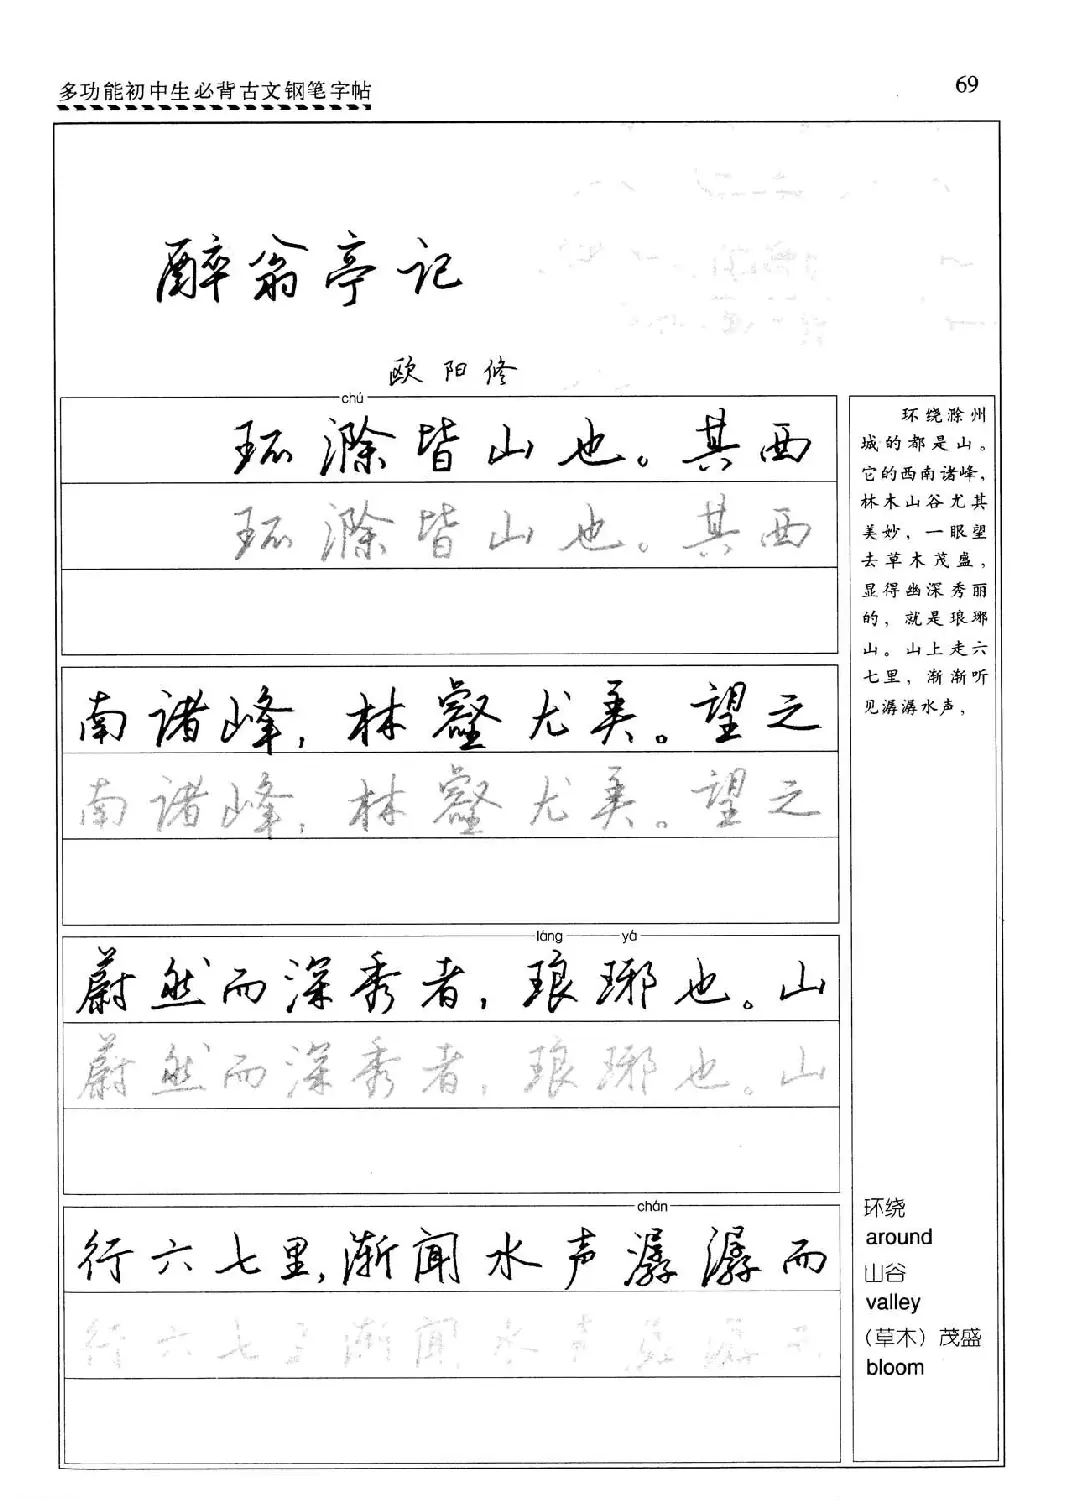 多功能初中生必背古文钢笔字帖
69
醉翁亭记
欧阳修
chú
环滁皆山也。其西
环滁皆山也。其西
南诸峰,林壑尤美。望之
南诸峰,林壑尤美。望之
láng yá
蔚然而深秀者,琅琊也。山
蔚然而深秀者,琅琊也。山
chán
行六七里,渐闻水声潺潺而
行六七里渐闻水声潺潺而
环绕滁州
城的都是山。
它的西南诸峰,
林木山谷尤其
美妙,一眼望
去草木茂盛,
显得幽深秀丽
的,就是琅琊
山。山上走六
七里,渐渐听
见潺潺水声,
环绕
around
山谷
valley
(草木)茂盛
bloom